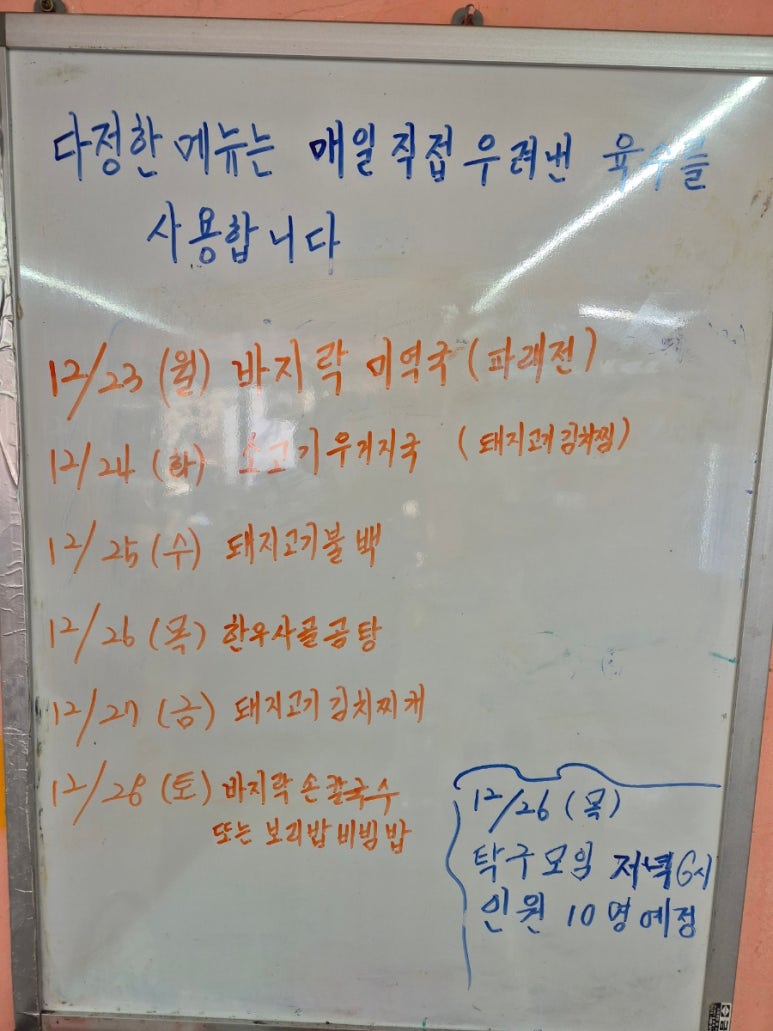 다정한 메뉴는 매일 직접 우려낸 육수를
사용합니다
12/23 (월) 바지락 미역국 (파래전)
12/24 (화) 소고기 우거지국 (돼지고기 김치찜)
12/25 (수) 돼지고기불백
12/26 (목) 한우사골곰탕
12/27 (금) 돼지고기 김치찌개
12/28 (토) 바지락 손칼국수
또는 보리밥비빔밥
12/26 (목)
탁구모임 저녁 6시
인원 10명 예정